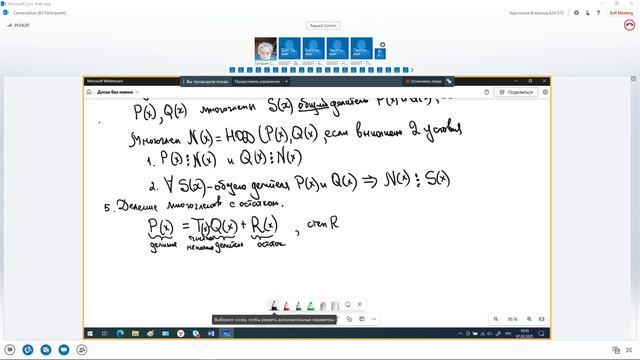 Microsoft Lync Web App
Conversation (83 Participants)
01:24:20
Exit Meeting
Request Control
Microsoft Whiteboard
Вы проводите показ
Предоставить управление
Остановить показ
Доска без имени
Поделиться
P(x), Q(x) многочлены S(x) общий делитель P(x) и Q(x),
Многочлен N(x) = НОД (P(x), Q(x)), если выполнены 2 условия
1. P(x) ⋮ N(x) и Q(x) ⋮ N(x)
2. ∀ S(x) – общего делителя P(x) и Q(x) ⇒ N(x) ⋮ S(x)
5. Деление многочленов с остатком.
P(x) = T(x) Q(x) + R(x) , степ R
делимое делитель остаток
Выберите снова, чтобы увидеть дополнительные параметры
95 %
РУС
10:45
07.02.2025